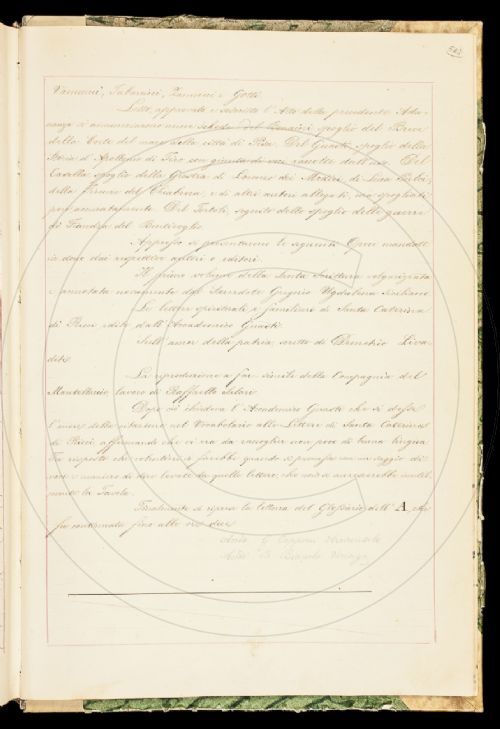 Vannucci, Tabarrini, Zannoni e Gotti.
Letto, approvato e sottoscritto l'Atto della precedente Adu-
nanza si annunziarono nuove schede del Bonaini, spoglio del Breve
della Corte del mare della città di Pisa. Del Guasti, spoglio della
Storia d'Apollonio di Tiro con giunta di voci cavate dall'uso. Del
Casella spoglio della Giostra di Lorenzo dei Medici, di Luca Pulci,
della Firenze del Chiabrera, e di altri autori allegati, ma spogliati
non annotatamente. Del Tortoli, seguito dello spoglio delle guerre
di Fiandra del Bentivoglio.
Appresso si presentarono le seguenti Opere mandate
in dono dai rispettivi autori o editori.
Il primo volume della Santa Scrittura volgarizzata
e annotata novamente dal Sacerdote Gregorio Ugdulena siciliano
Le lettere spirituali e familiari di Santa Caterina
di Ricci edite dall'Accademico Guasti.
Sull'amor della patria, scritto di Demetrio Liva-
diti.
La riproduzione a fac simile della Compagnia del
Mantellaccio, lavoro di Raffaello Salari
Dopo ciò chiedeva l'Accademico Guasti che si desse
l'onore della citazione nel Vocabolario alle Lettere di Santa Caterina
de' Ricci affermando che vi era da raccoglier non poco di buona lingua.
Fu risposto che volentieri si farebbe quando si provasse con un saggio di
voci e maniere di dire levate da quelle lettere, che ciò accrescerebbe util-
mente la Tavola.
Finalmente si riprese la lettura del Glossario dell'A, che
fu continuata fino alle ore due